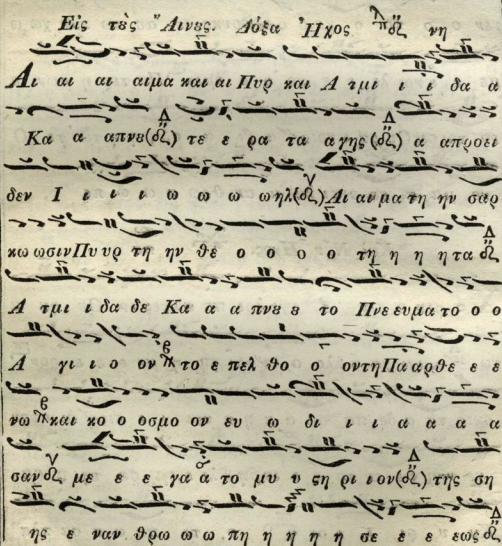 Εἰς τὲς Ἄινες. Δόξα Ἦχος πꙋ νη
Αι αι αι αιμα και αι Πυρ και Α τμι ι ι δα α
Κα α απνȣ(δ) τε ε ρα τα α γης(δ) α απροει
δεν Ι ι ι ι ω ω ω ω ωηλ(δ) Αι αιμα τη ην σαρ
κω ωσιν Πυ υρ τη ην θε ο ο ο ο τη η η η τα
Α τμι ι δα δε Κα α α πνȣ ȣ το Πνε ευμα το ο ο
Α γι ι ο ον το ε πελ θο ο ο οντη Πα αρθε ε ε
νω και κο ο οσμο ον ευ ω δι ι ι α α α α
σαν με ε ε γα α το μυ υ ςη ρι ι ον(δ) της ση
ης ε ναν θρω ω ω πη η η η η σε ε ε εως